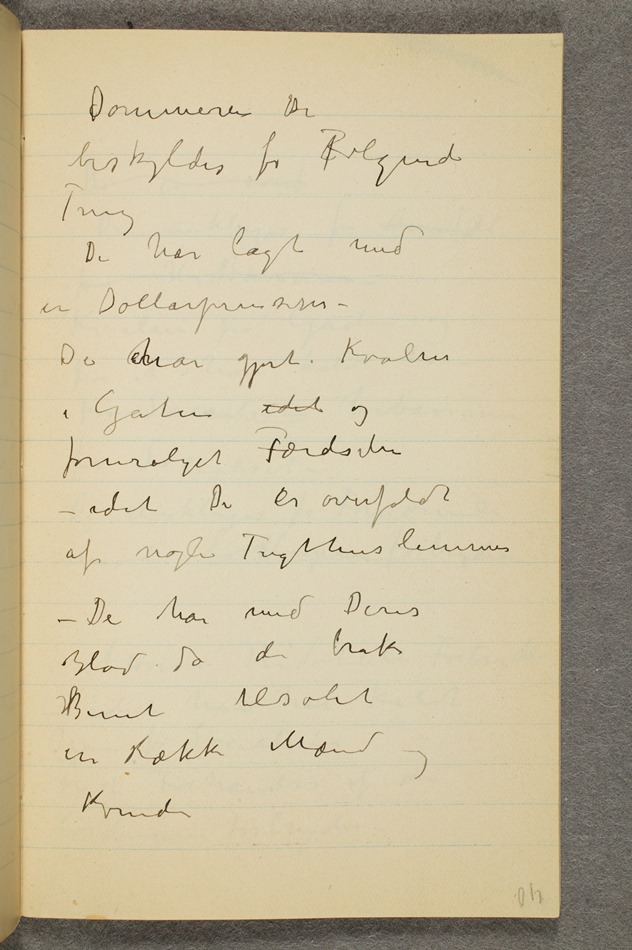 Dommeren De
beskyldes for Følgende
Ting
De har lagt med
en Dollarprinsesse –
De har gjort Kvalm
i Gaten idet og
Færdselen
– idet De er overfaldt
af nogle Tugthuslemmer
– De har med Deres
Blod da de brak
Benet
en Række Mænd og
Kvinder
40